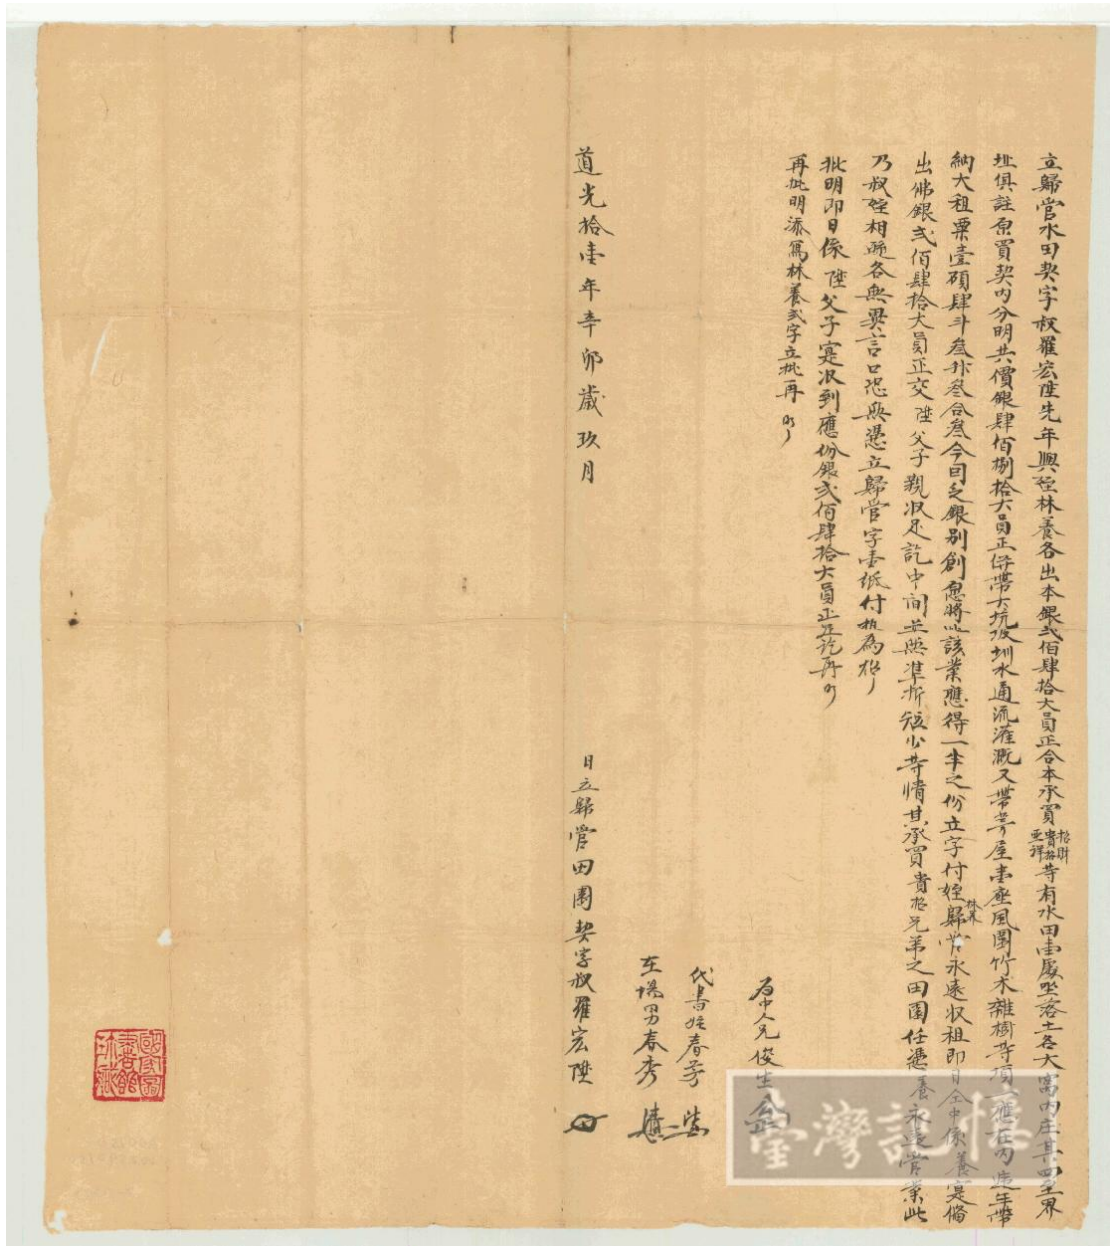 立歸管水田契字叔羅宏陞先年與姪林養各出本銀弍佰肆拾大員正合本承買拾財貴拾亞祥等有水田壹處坐落土名大窩內庄其四至界
址俱註原買契內分明共價銀肆佰捌拾大員正併帶大坑陂圳水通流灌溉又帶茅屋壹座風圍竹木雜樹等項一應在內遞年帶
納大租粟壹碩肆斗叁升叁合叁今因乏銀別創愿將此該業應得一半之份立字付姪林養歸管永遠收租即日仝中係養寔備
出佛銀弍佰肆拾大員正交陞父子親收足訖中间並無準折短少等情其承買貴拾兄弟之田園任憑養永遠管業此
乃叔姪相延各無異言口恐無憑立歸管字壹紙付执為炤
批明即日係陞父子寔收到應份銀弍佰肆拾大員正足訖再炤
再批明添寫林養弍字立批再炤
為中人兄俊生
代書姪春芳
在場男春秀
道光拾壹年辛卯歲玖月
日立歸管田園契字叔羅宏陞
國家圖書館珍藏
臺灣記憶